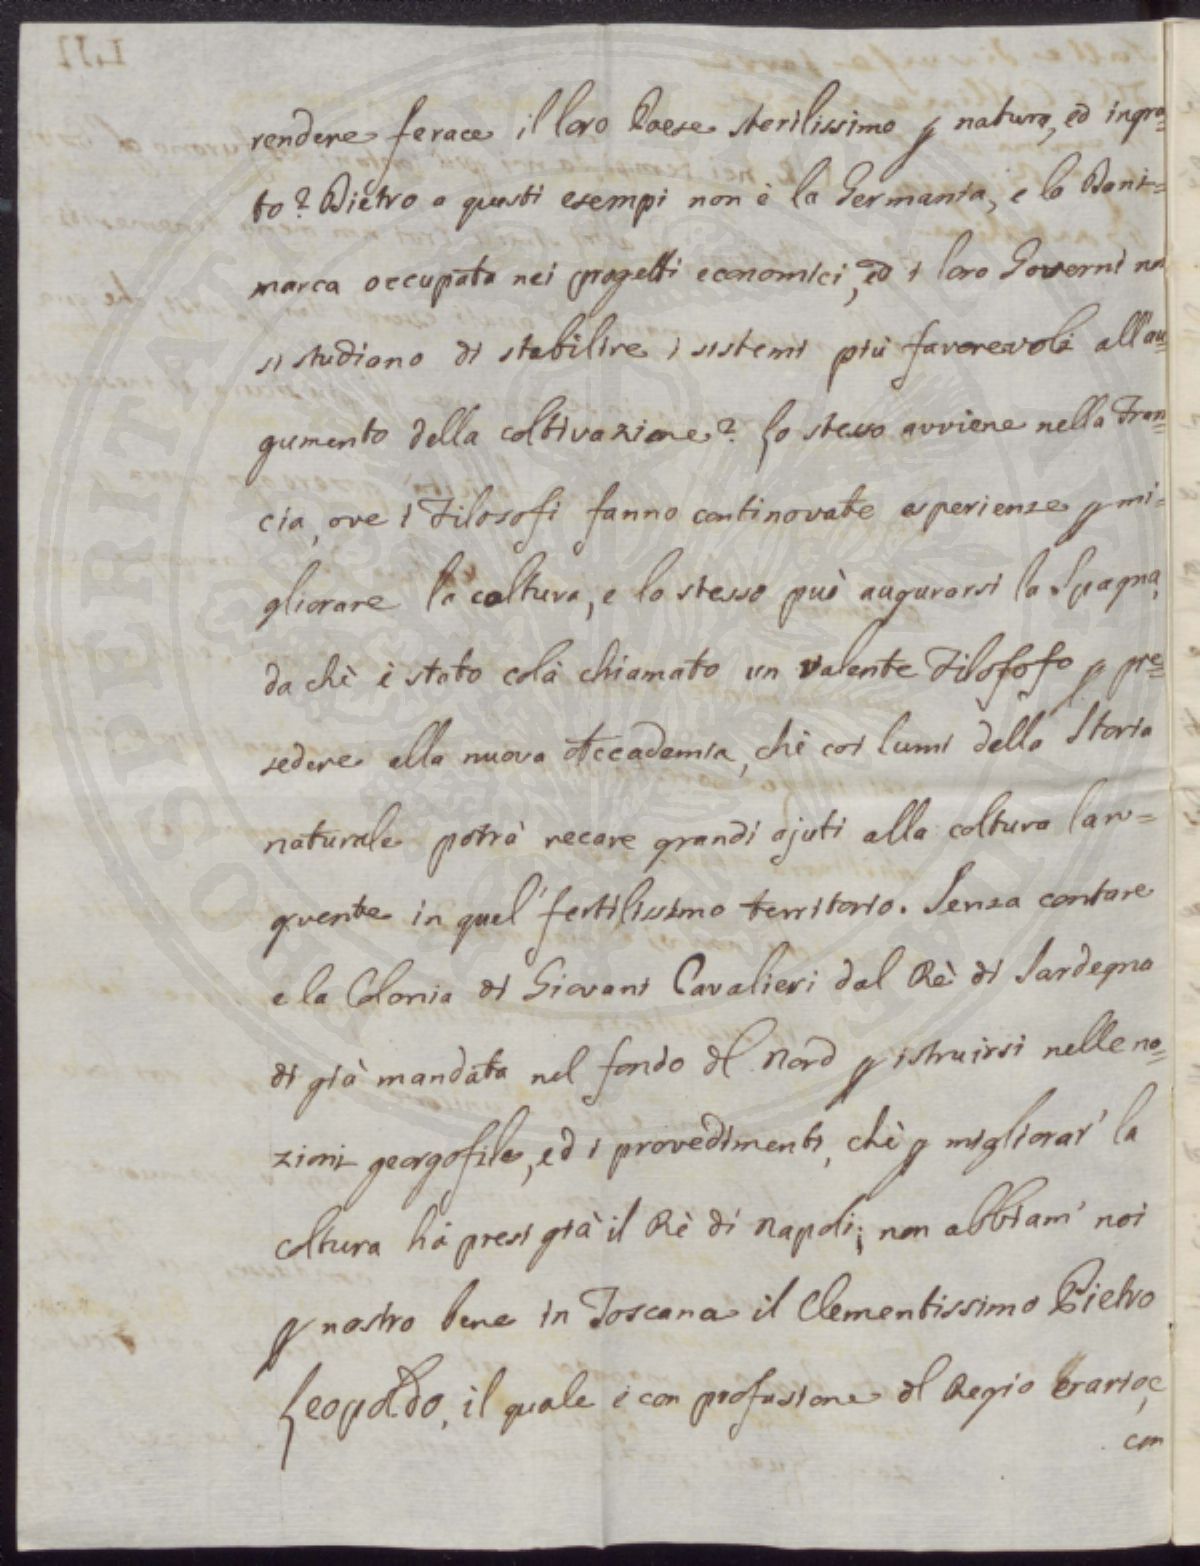 rendere ferace il loro Paese sterilissimo p natura, ed ingra-
to? Dietro a questi esempi non è la Germania, e la Dani=
marca occupata nei progetti economici, ed i loro Governi non
si studiano di stabilire i sistemi più favorevoli all'au=
gumento della coltivazione? Lo stesso avviene nella Fran=
cia, ove i Filosofi fanno continovate esperienze p mi=
gliorare la coltura, e lo stesso può augurarsi la Spagna,
da chè è stato colà chiamato un valente Filosofo p pre=
sedere alla nuova Accademia, chè coi lumi della Storia
naturale potrà recare grandi ajuti alla coltura lan=
guente in quel' fertilissimo territorio. Senza contare
e la Colonia di Giovani Cavalieri dal Rè di Sardegna
di già mandata nel fondo del Nord p istruirsi nelle no=
zioni georgofile, ed i provedimenti, chè p migliorar' la
coltura hà presi già il Rè di Napoli; non abbiam' noi
p nostro bene in Toscana il Clementissimo Pietro
Leopoldo, il quale e con profusione del Regio Erario, e
con